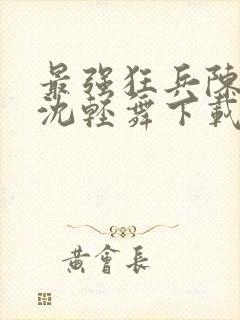 最强狂兵陳
沈輕舞下載
黄會長